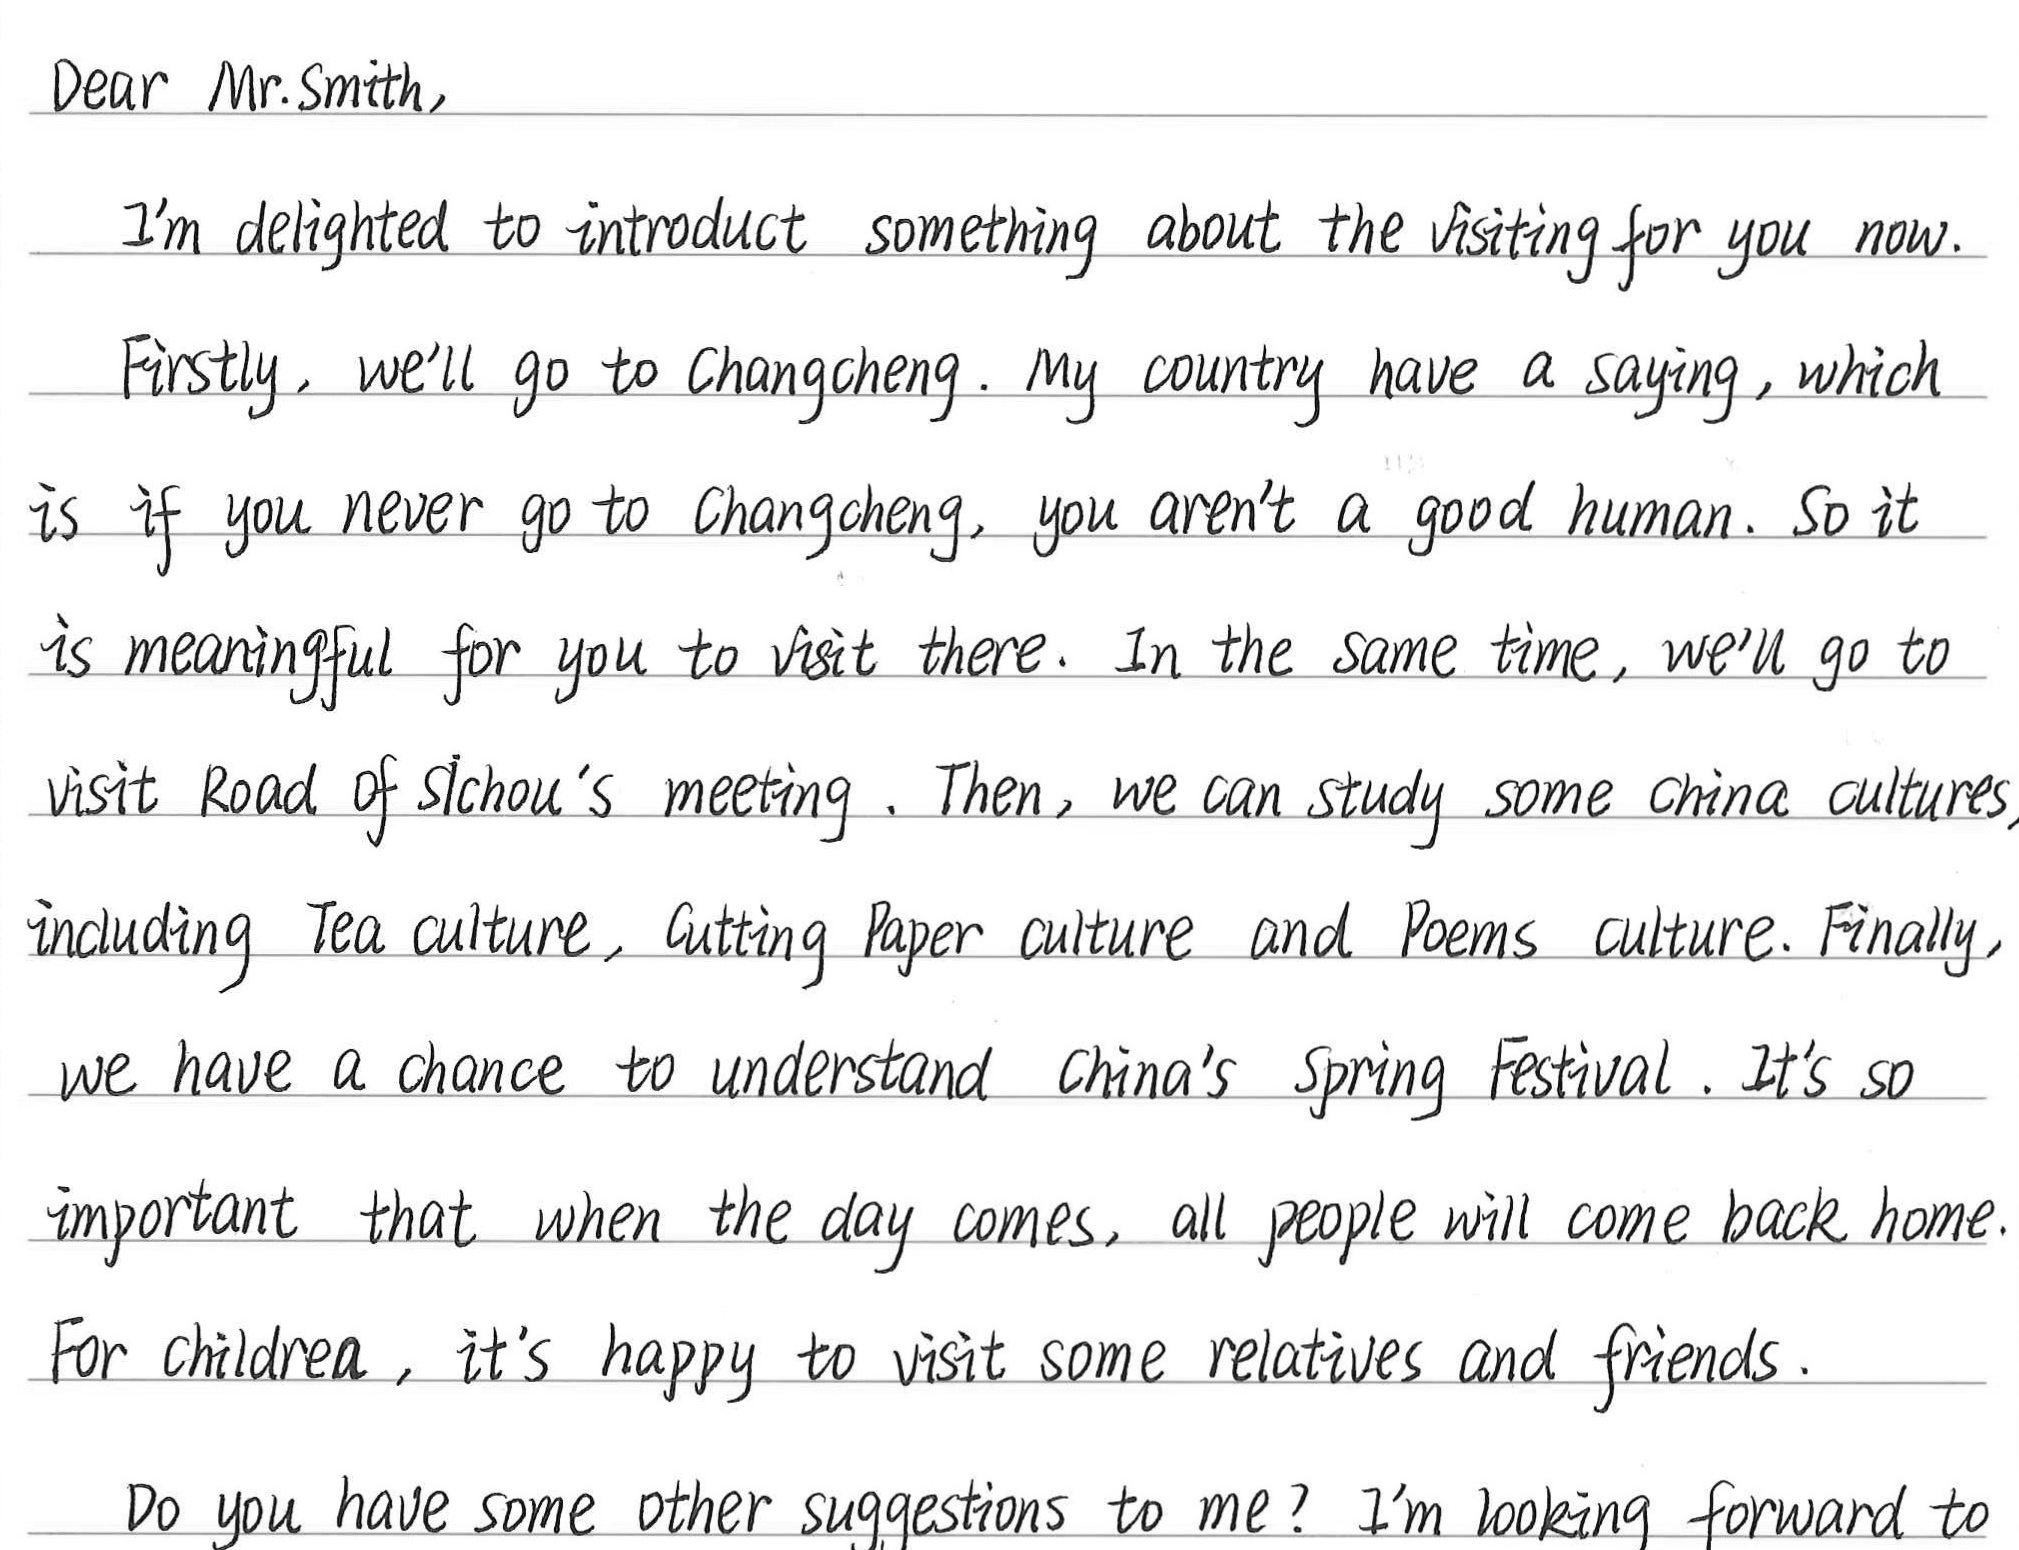 Dear Mr. Smith,
I'm delighted to introduct something about the visiting for you now.
Firstly, we'll go to Changcheng. My country have a saying, which
is if you never go to Changcheng, you aren't a good human. So it
is meaningful for you to visit there. In the same time, we'll go to
visit Road of Sichou's meeting. Then, we can study some China cultures,
including Tea culture, Cutting Paper culture and Poems culture. Finally,
we have a chance to understand China's Spring Festival. It's so
important that when the day comes, all people will come back home.
For childrea, it's happy to visit some relatives and friends.
Do you have some other suggestions to me? I'm looking forward to